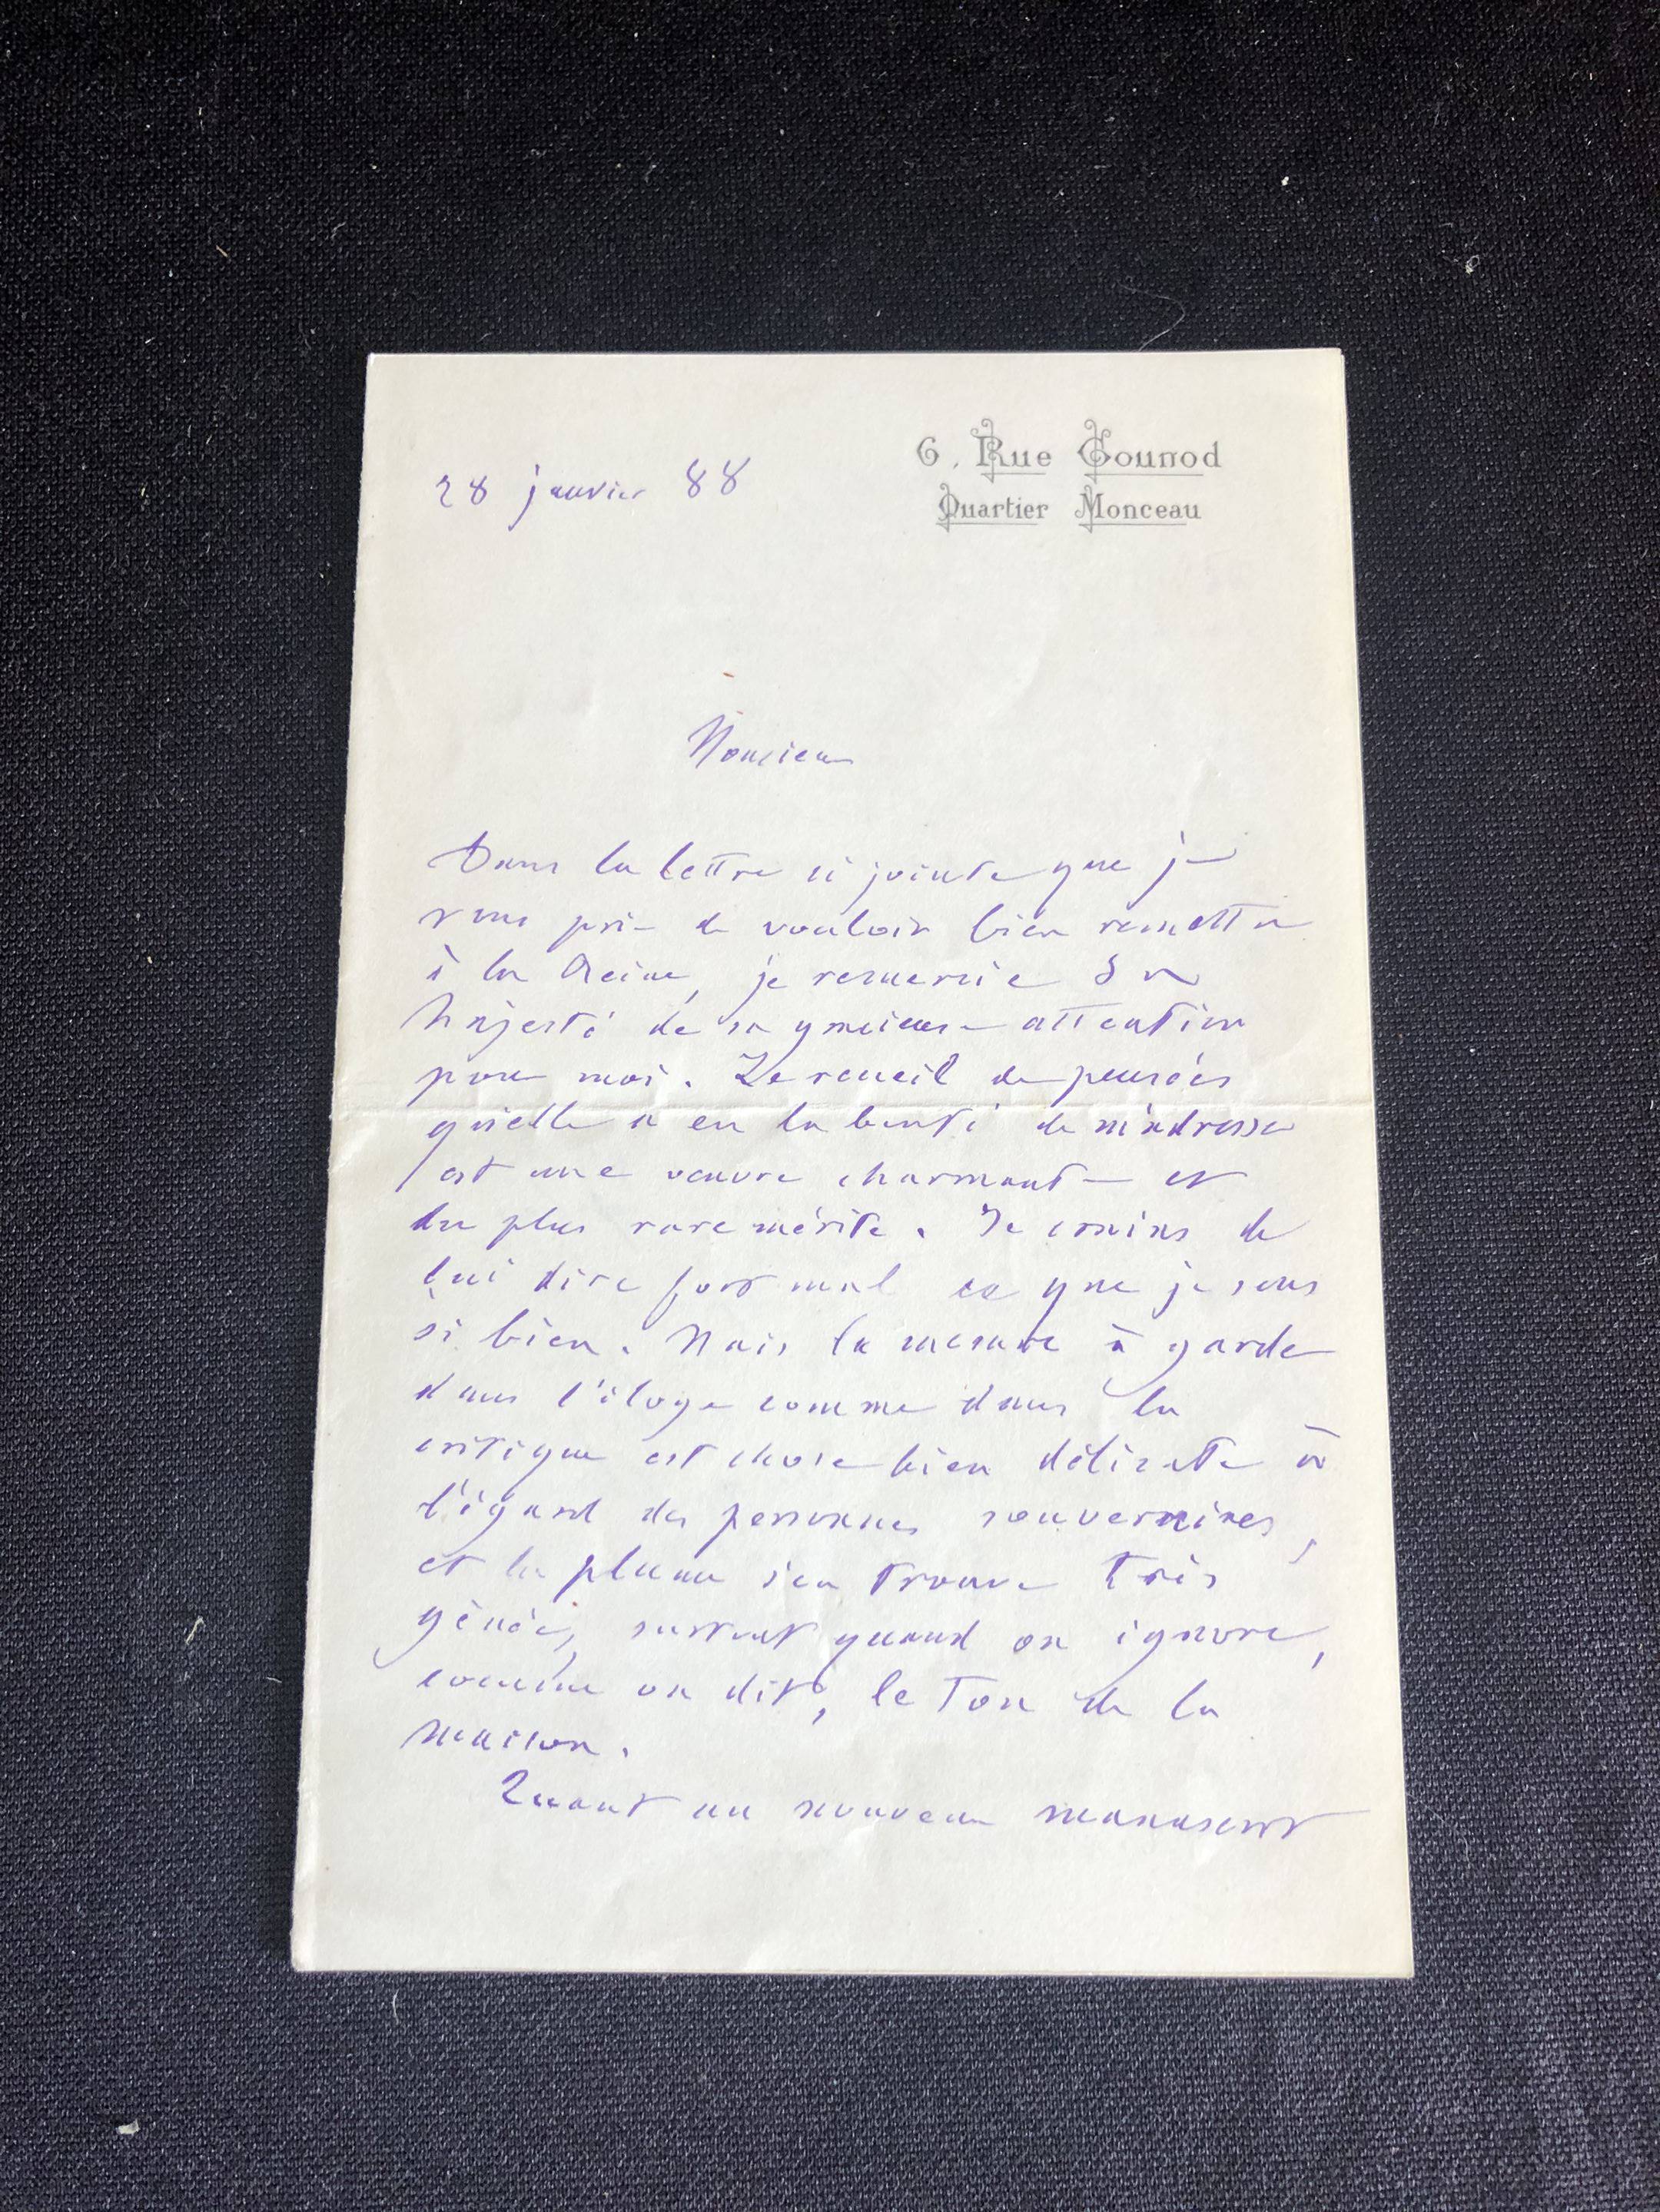 6, Rue Gounod
Quartier Monceau
28 janvier 88
Monsieur
Dans la lettre ci jointe que je
vous prie de vouloir bien remettre
à la Reine, je remercie Sa
Majesté de sa gracieuse attention
pour moi. Le recueil de pensées
qu'elle a eu la bonté de m'adresser
est une œuvre charmante et
du plus rare mérite. Je crains de
lui dire fort mal ce que je sens
si bien. Mais la mesure à garder
dans l'éloge comme dans la
critique est chose bien délicate à
l'égard des personnes souveraines,
et la plume s'en trouve très
gênée, surtout quand on ignore,
comme on dit, le ton de la
maison.
Quant au nouveau manuscrit